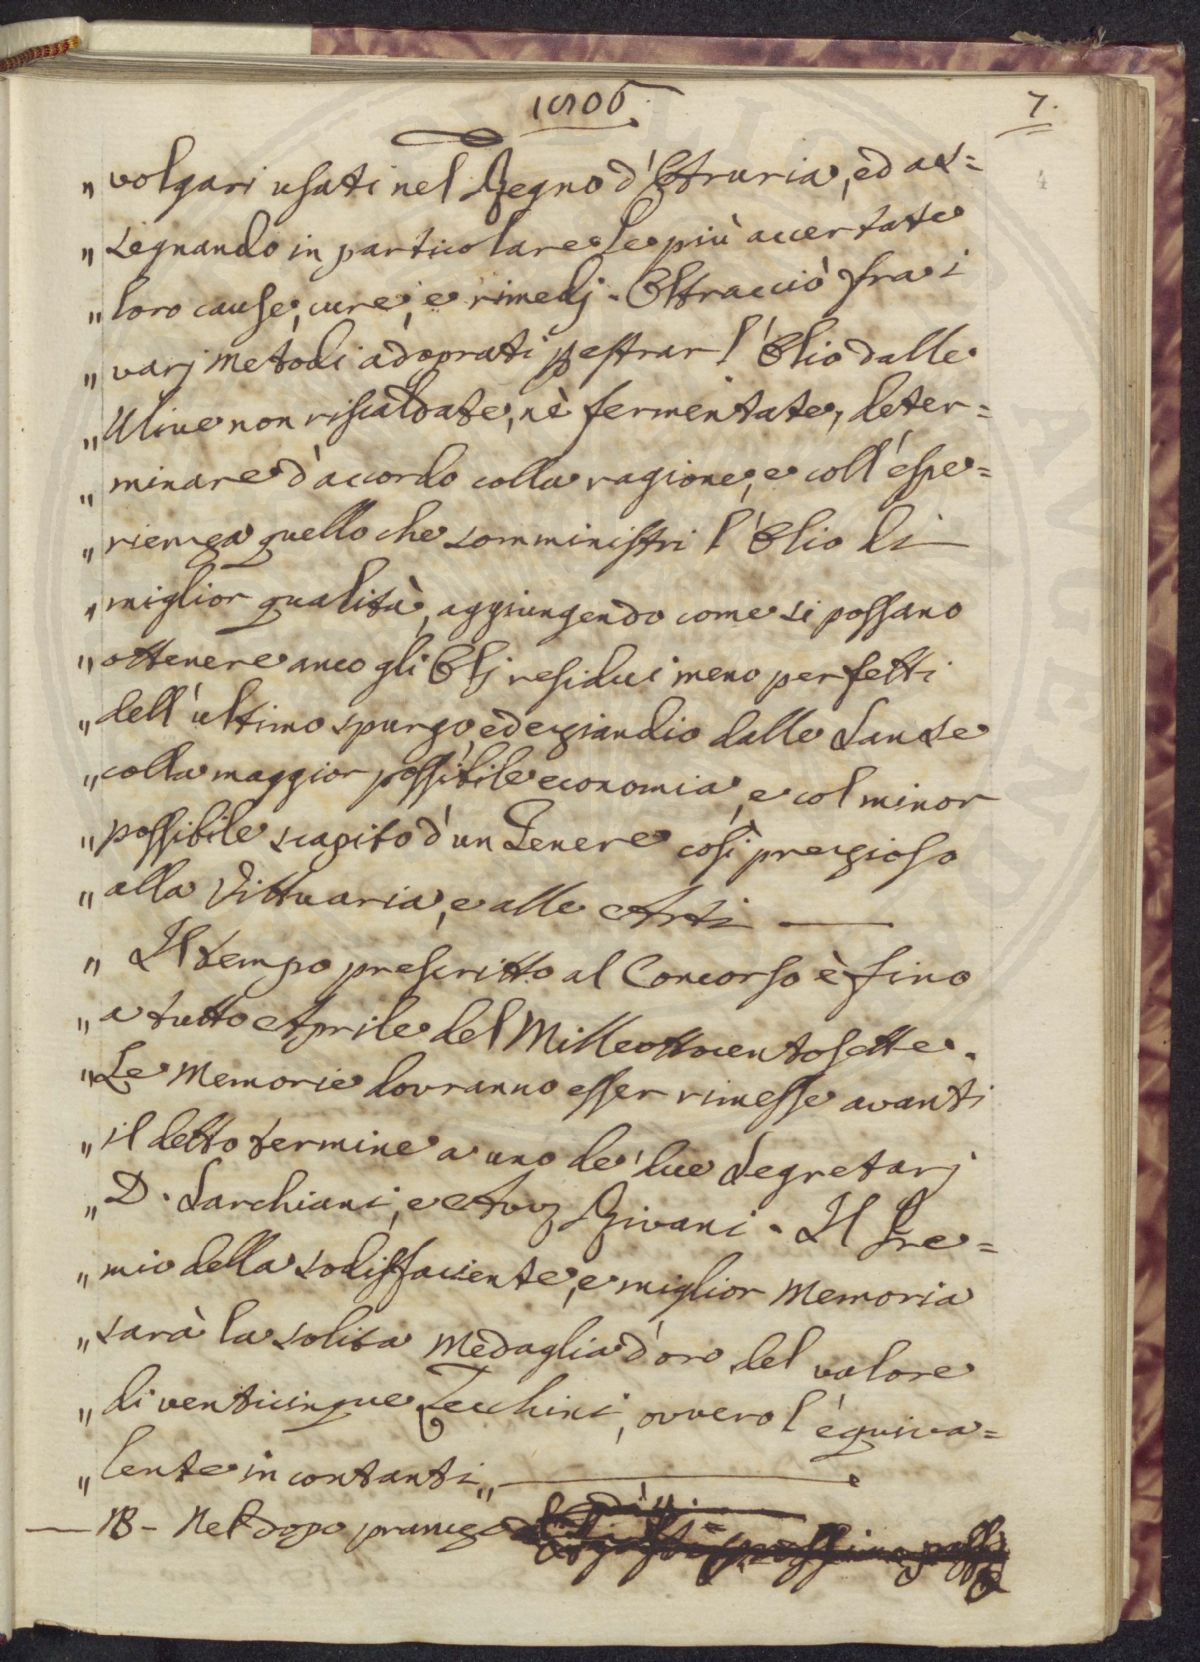 1806. 7.
„ volgari usati nel Regno d'Etruria, ed as=
„ segnando in particolare le più accertate
„ loro cause, cure, e rimedj. Oltracciò fra i
„ varj Metodi adoprati p estrar l'Olio dalle
„ Ulive non riscaldate, nè fermentate, deter=
„ minare d'accordo colla ragione, e coll'espe=
„ rienza quello che somministri l'Olio di
„ miglior qualità, aggiungendo come si possano
„ ottenere anco gli Olj residui meno perfetti
„ dell'ultimo spurgo ed eziandio dalle Sanse
„ colla maggior possibile economia, e col minor
„ possibile scapito d'un Genere così prezioso
„ alla Vittuaria, e alle Arti —
„ Il tempo prescritto al Concorso è fino
„ a tutto Aprile del Milleottocentosette.
„ Le Memorie dovranno esser rimesse avanti
„ il detto termine a uno de' due Segretarj
„ D. Sarchiani, e Avv Rivani. Il Pre=
„ mio della sodisfaciente, e miglior Memoria
„ sarà la solita Medaglia d'oro del valore
„ di venticinque Zecchini, ovvero l'equiva=
„ lente in contanti „ —
— NB - Nel dopo pranzo